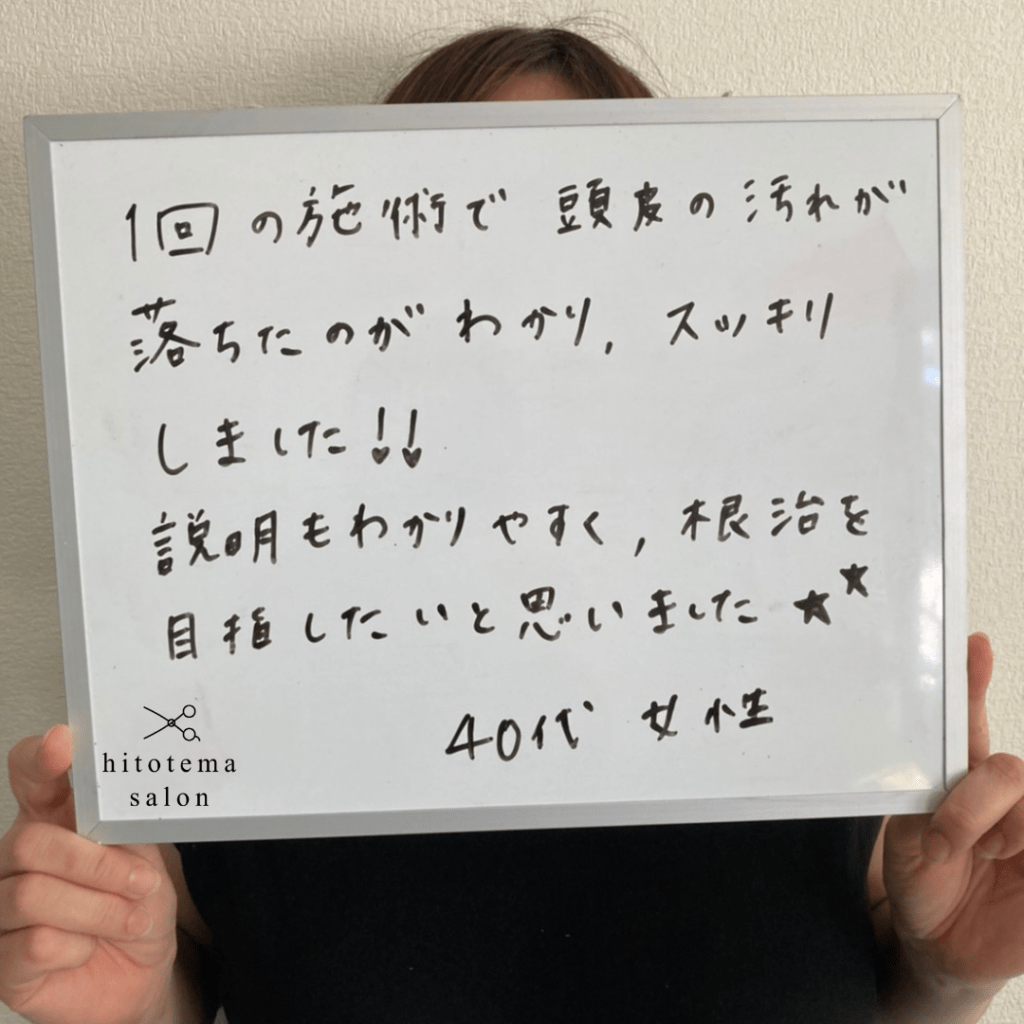 1回の施術で 頭皮の汚れが
落ちたのがわかり, スッキリ
しました!!
説明もわかりやすく, 根治を
目指したいと思いました★★
40代 女性
hitotema
salon